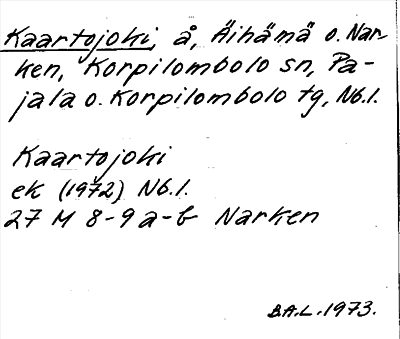 Kaartojoki, å, Äihämä o. Nar-
ken, Korpilombolo sn, Pa-
jala o. Korpilombolo tg, Nb.l.
Kaartojoki
ek (1972) Nb.l.
27 M 8-9 a-b Narken
B.A.L. 1973.